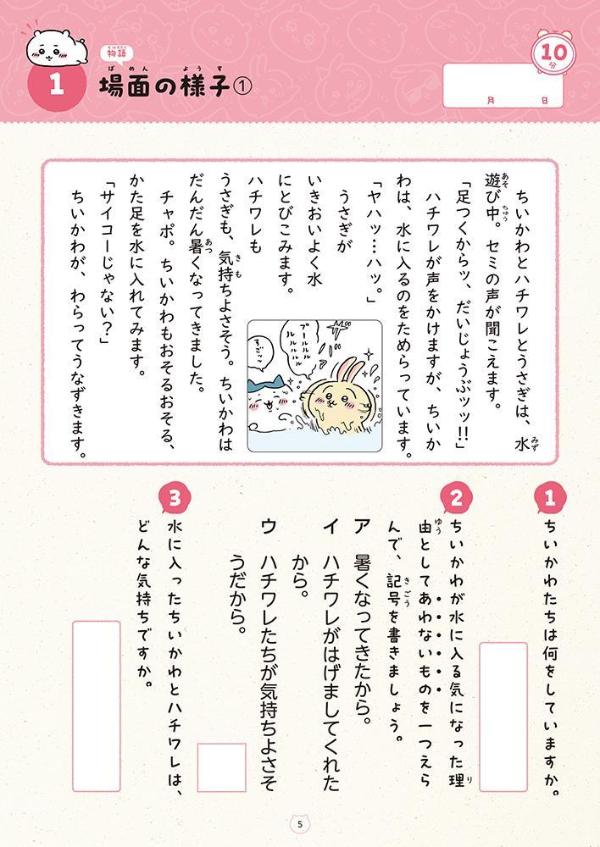 物語
1
場面の様子①
10分
月 日
ちいかわとハチワレとうさぎは、水
遊び中。セミの声が聞こえます。
「足つくからッ、だいじょうぶッッ!!」
ハチワレが声をかけますが、ちいか
わは、水に入るのをためらっています。
「ヤハッ…ハッ。」
うさぎが
いきおいよく水
にとびこみます。
ハチワレも
うさぎも、気持ちよさそう。ちいかわは
だんだん暑くなってきました。
チャポ。ちいかわもおそるおそる、
かた足を水に入れてみます。
「サイコーじゃない?」
ちいかわが、わらってうなずきます。
プールルル
ルルルル
ルルルル
すごッ
1
ちいかわたちは何をしていますか。
2
ちいかわが水に入る気になった理
由としてあわないものを一つえら
んで、記号を書きましょう。
ア 暑くなってきたから。
イ ハチワレがはげましてくれた
から。
ウ ハチワレたちが気持ちよさそ
うだから。
3
水に入ったちいかわとハチワレは、
どんな気持ちですか。
5